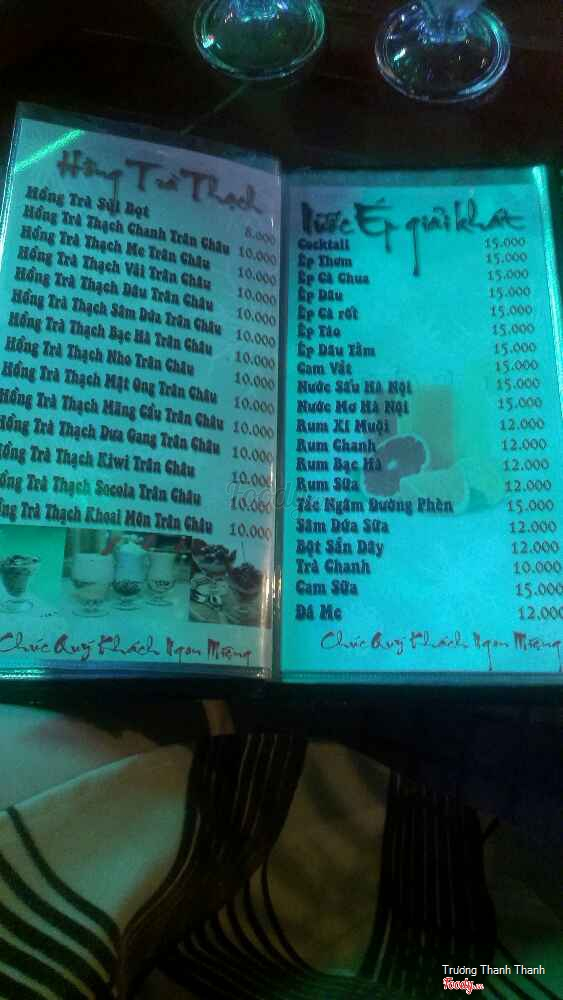 Hồng Trà Thạch
Hồng Trà Sủi Bọt 8.000
Hồng Trà Thạch Chanh Trân Châu 10.000
Hồng Trà Thạch Me Trân Châu 10.000
Hồng Trà Thạch Vải Trân Châu 10.000
Hồng Trà Thạch Dâu Trân Châu 10.000
Hồng Trà Thạch Sâm Dứa Trân Châu 10.000
Hồng Trà Thạch Bạc Hà Trân Châu 10.000
Hồng Trà Thạch Nho Trân Châu 10.000
Hồng Trà Thạch Mật Ong Trân Châu 10.000
Hồng Trà Thạch Mãng Cầu Trân Châu 10.000
Hồng Trà Thạch Dưa Gang Trân Châu 10.000
Hồng Trà Thạch Kiwi Trân Châu 10.000
Hồng Trà Thạch Socola Trân Châu 10.000
Hồng Trà Thạch Khoai Môn Trân Châu 10.000
Chúc Quý Khách Ngon Miệng
Nước Ép giải khát
Cocktail 15.000
Ép Thơm 15.000
Ép Cà Chua 15.000
Ép Dâu 15.000
Ép Cà rốt 15.000
Ép Táo 15.000
Ép Dâu Tằm 15.000
Cam Vắt 15.000
Nước Sấu Hà Nội 15.000
Nước Mơ Hà Nội 15.000
Rum Xí Muội 12.000
Rum Chanh 12.000
Rum Bạc Hà 12.000
Rum Sữa 12.000
Tắc Ngâm Đường Phèn 15.000
Sâm Dứa Sữa 12.000
Bột Sắn Dây 12.000
Trà Chanh 10.000
Cam Sữa 15.000
Đá Me 12.000
Chúc Quý Khách Ngon Miệng
Trương Thanh Thanh
Foody.vn